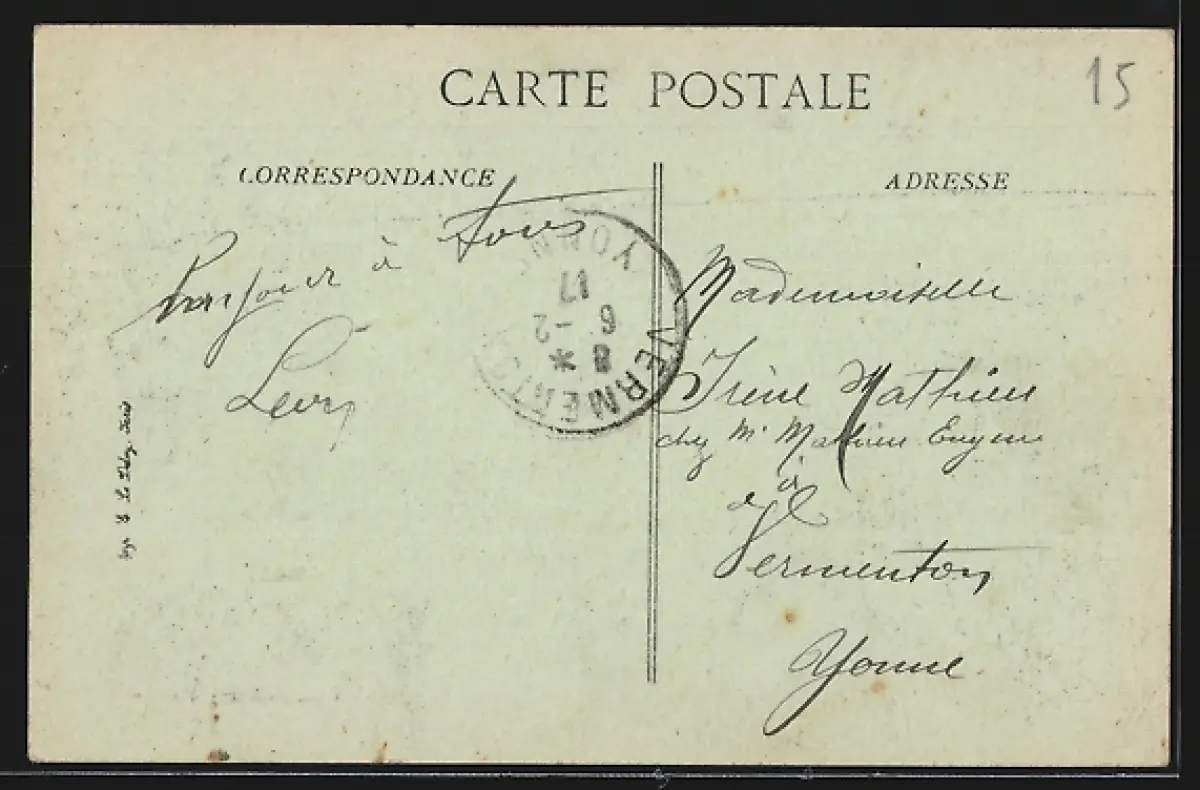 CARTE POSTALE
15
CORRESPONDANCE
ADRESSE
bonjour à tous
Mademoiselle
Irène Mathieu
chez Mr Mathieu Eugène
à
Vermenton
Yonne
YONNE
17
6-2
8 *
VERMENTON